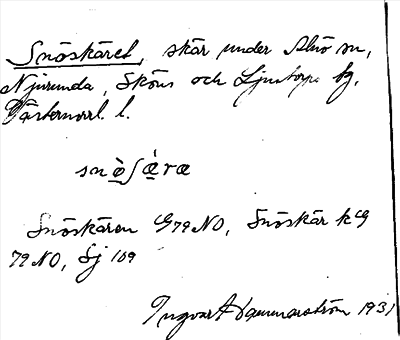 Snöskäret, skär under Alnö sn,
Njurunda, Sköns och Ljustorps tg,
Västernorrl. l.
snö̀ʃæ̀ræ
Snöskären G79NO, Snöskär kG
79 NO, Sj 109
Ingvar Hammarström 1931